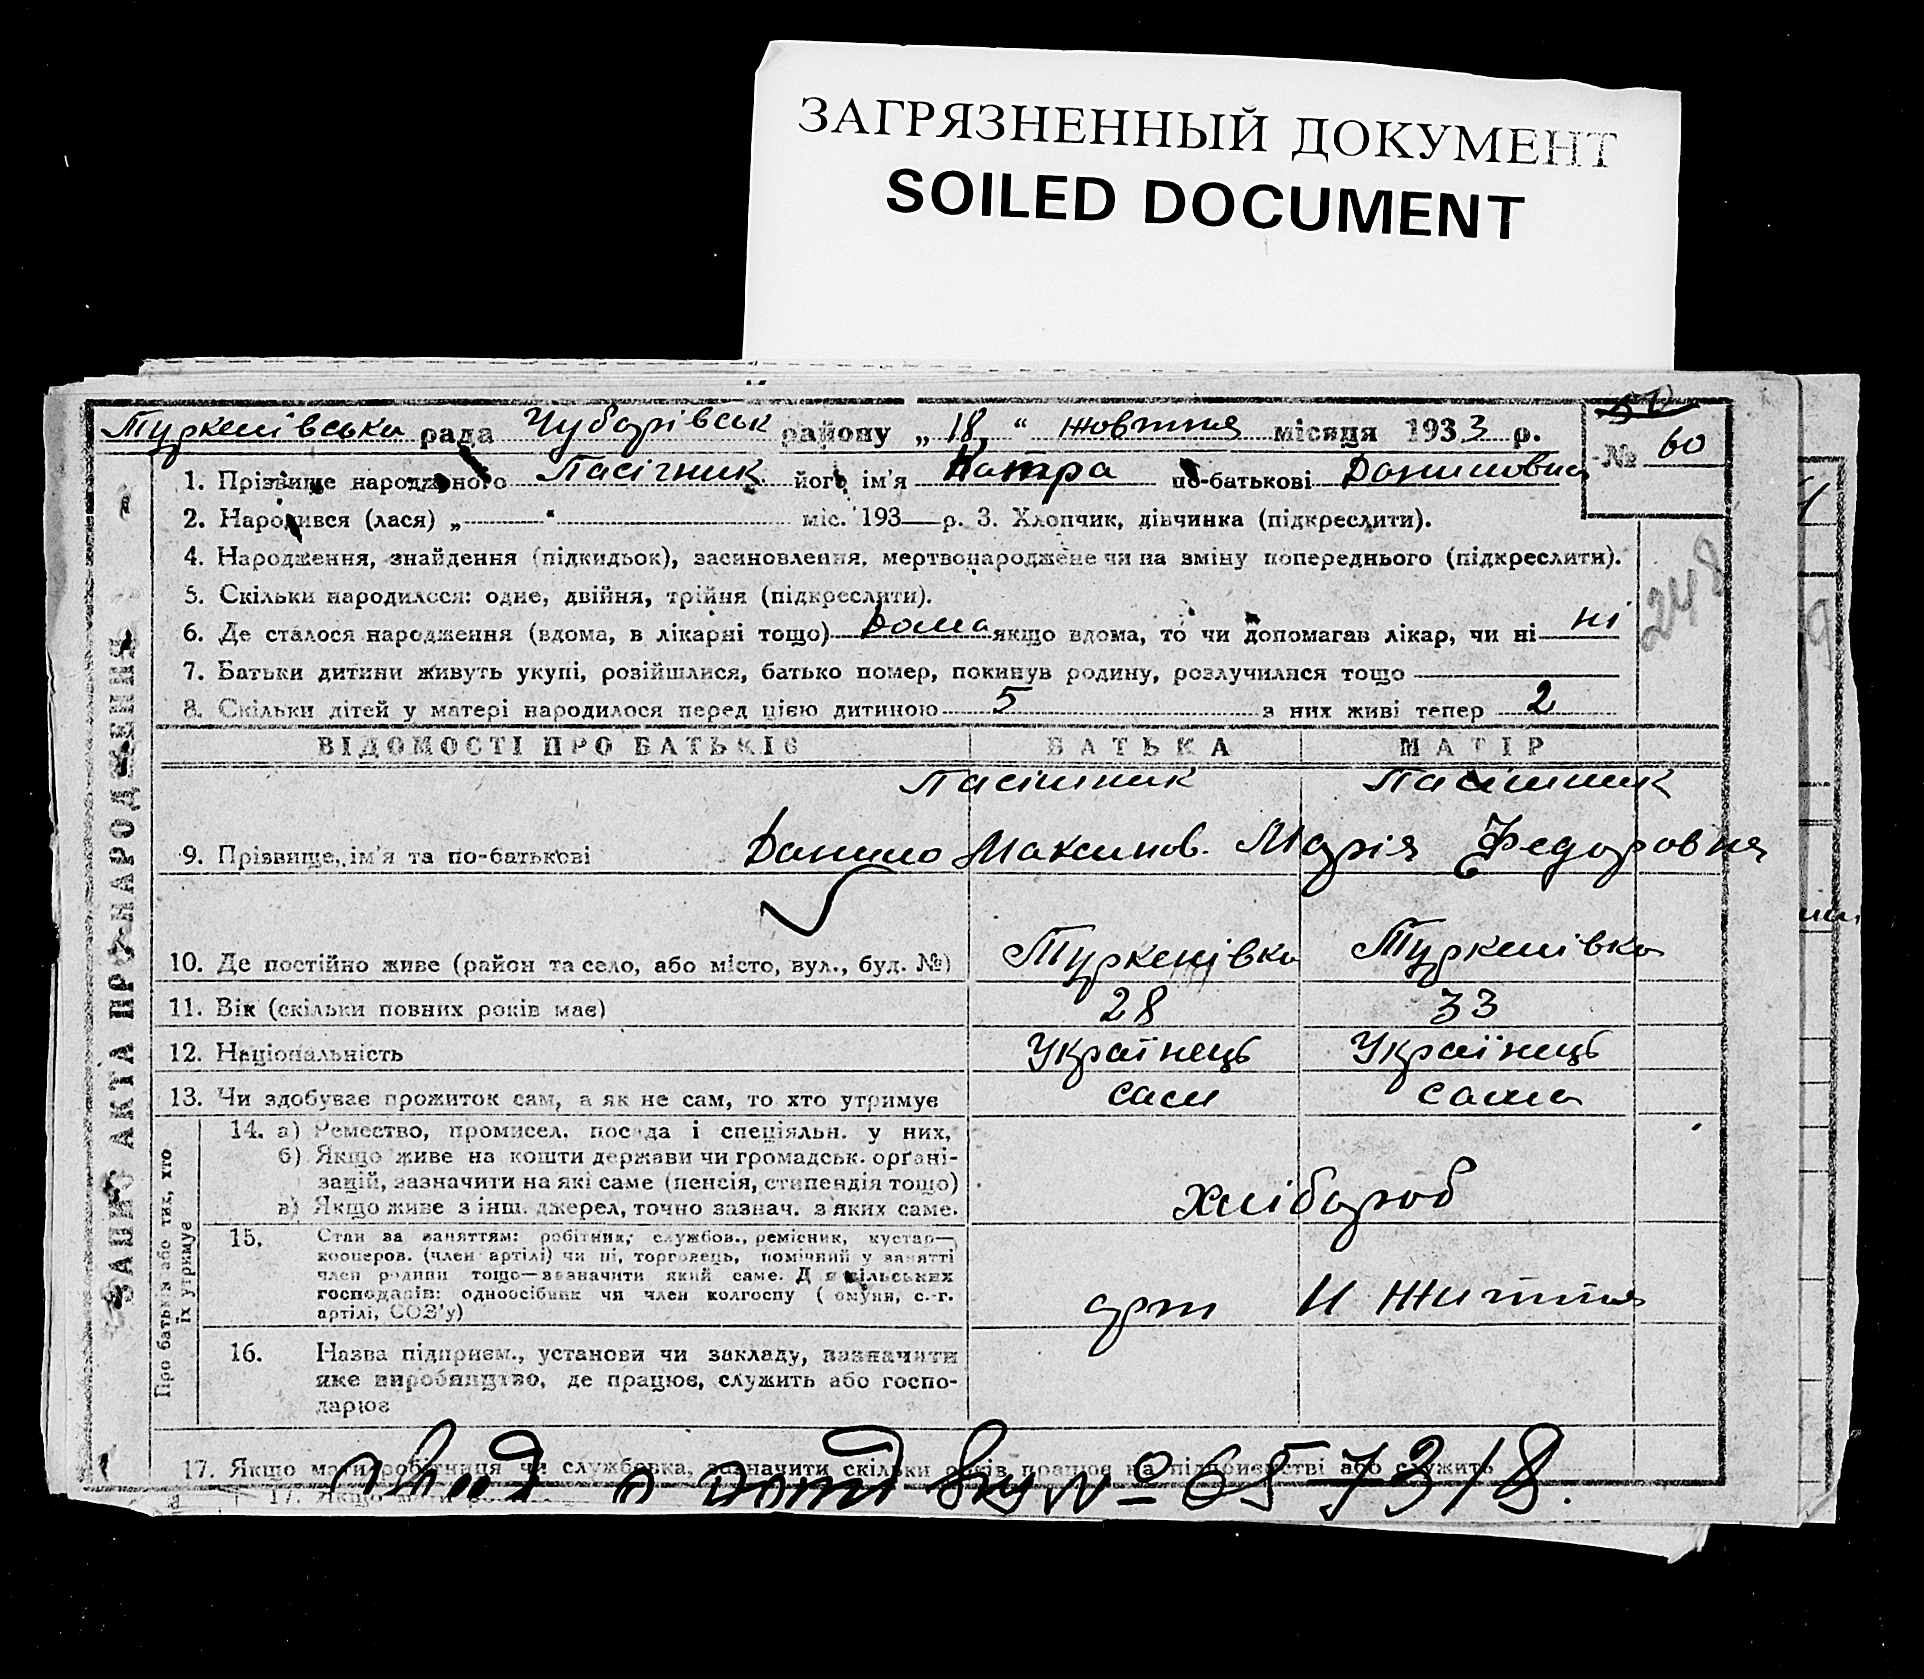 ЗАГРЯЗНЕННЫЙ ДОКУМЕНТ
SOILED DOCUMENT
50
Туркенівська рада Чубарівськ району „ 18 “ жовтня місяця 1933 р.
№ 60
1. Прізвище народженого Пасічник його ім'я Катра по-батькові Даниловна
2. Народився (лася) „ “ міс. 193—р. 3. Хлопчик, дівчинка (підкреслити).
4. Народження, знайдення (підкидьок), засиновлення, мертвонароджене чи на зміну попереднього (підкреслити).
5. Скільки народилося: одне, двійня, трійня (підкреслити).
6. Де сталося народження (вдома, в лікарні тощо) Дома якщо вдома, то чи допомагав лікар, чи ні ні
248
7. Батьки дитини живуть укупі, розійшлися, батько помер, покинув родину, розлучилися тощо
8. Скільки дітей у матері народилося перед цією дитиною 5 з них живі тепер 2
ВІДОМОСТІ ПРО БАТЬКІВ БАТЬКА МАТІР
Пасішник Пасішник
9. Прізвище, ім'я та по-батькові Данило Максимов. Марія Федоровна
10. Де постійно живе (район та село, або місто, вул., буд. №) Туркенівка Туркенівка
11. Вік (скільки повних років має) 28 33
12. Національність Українець Українець
13. Чи здобуває прожиток сам, а як не сам, то хто утримує сам сама
14. а) Ремество, промисел, посада і спеціяльн. у них,
б) Якщо живе на кошти держави чи громадськ. орґані-
зацій, зазначити на які саме (пенсія, стипендія тощо)
в) Якщо живе з інш. джерел, точно зазнач. з яких саме.
Хлібороб
15. Стан за заняттям: робітник, службов., ремісник, кустар—
кооперов. (член артілі) чи ні, торговець, помічний у занятті
член родини тощо—зазначити який саме. Для сільських
господарів: одноосібник чи член колгоспу (комуни, с.-г.
артілі, СОЗ'у)
арт Н Життя
16. Назва підприєм., установи чи закладу, зазначити
яке виробництво, де працює, служить або госпо-
дарює
17. Якщо мати робітниця чи службовка, зазначити скільки років працює на підприємстві або служить
№ 657318.
17. Якщо мати
ЗАПИС АКТА ПРО НАРОДЖЕННЯ
Про батьків або тих, хто
їх утримує